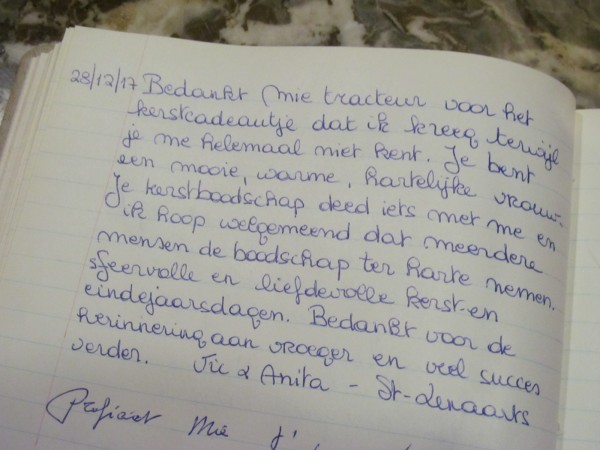 28/12/17 Bedankt Mie tracteur voor het
kerstcadeautje dat ik kreeg terwijl
je me helemaal niet kent. Je bent
een mooie, warme, hartelijke vrouw.
Je kerstboodschap deed iets met me en
ik hoop welgemeend dat meerdere
mensen de boodschap ter harte nemen.
sfeervolle en liefdevolle kerst-en
eindejaarsdagen. Bedankt voor de
herinnering aan vroeger en veel succes
verder. Vic & Anita - St-Lenaarts
Proficiat Mie